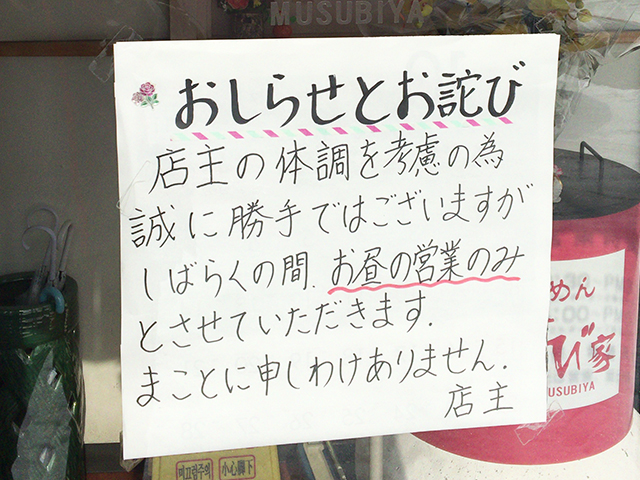 MUSUBIYA
おしらせとお詫び
店主の体調を考慮の為
誠に勝手ではございますが
しばらくの間、お昼の営業のみ
とさせていただきます.
まことに申しわけありません.
店主
めん
び家
MUSUBIYA
미끄럼주의
小心脚下